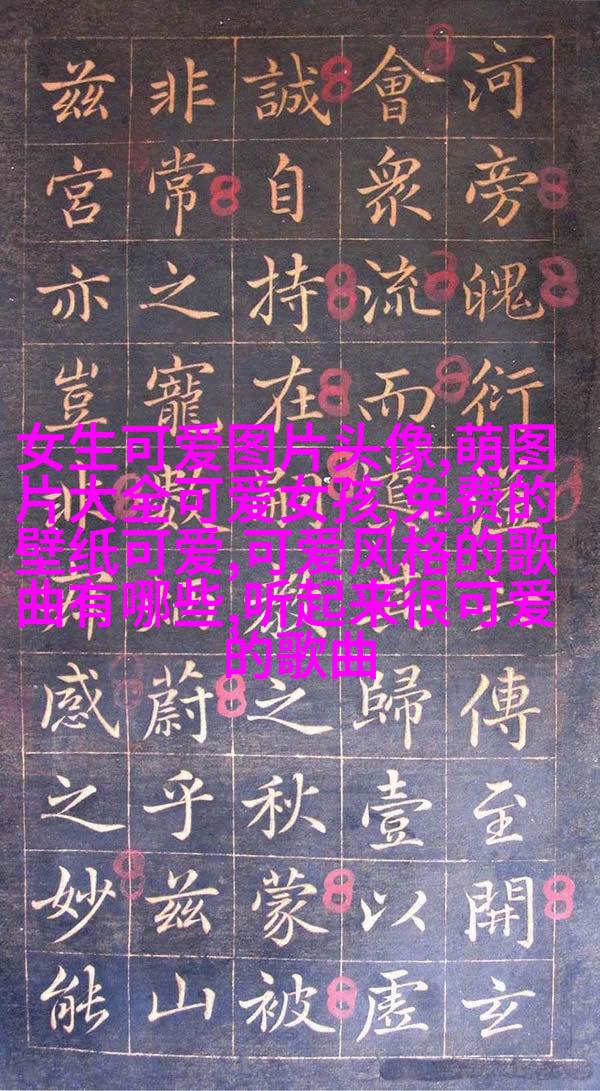 河旁魄衍傳至開玄
會衆流而歸壹以虛
誠自持在之秋蒙被
非常之寵蔚乎兹山
兹宮亦豈感之妙能
女生可爱图片头像,萌图
片大全可爱女孩,免费的
壁纸可爱,可爱风格的歌
曲有哪些,听起来很可爱
的歌曲